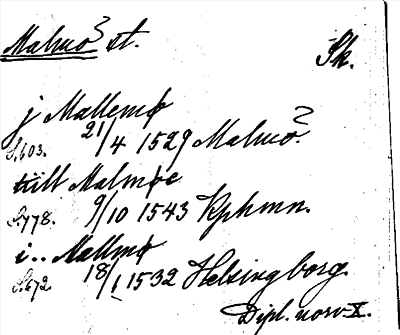 Malmö? st. Sk.
j Mallemø
S.603. 21/4 1529 Malmö?
till Malmøe
S.778. 9/10 1543 Kphmn.
i.. Mallmø
S.672 18/1 1532 Helsingborg.
Dipl. norv. X.